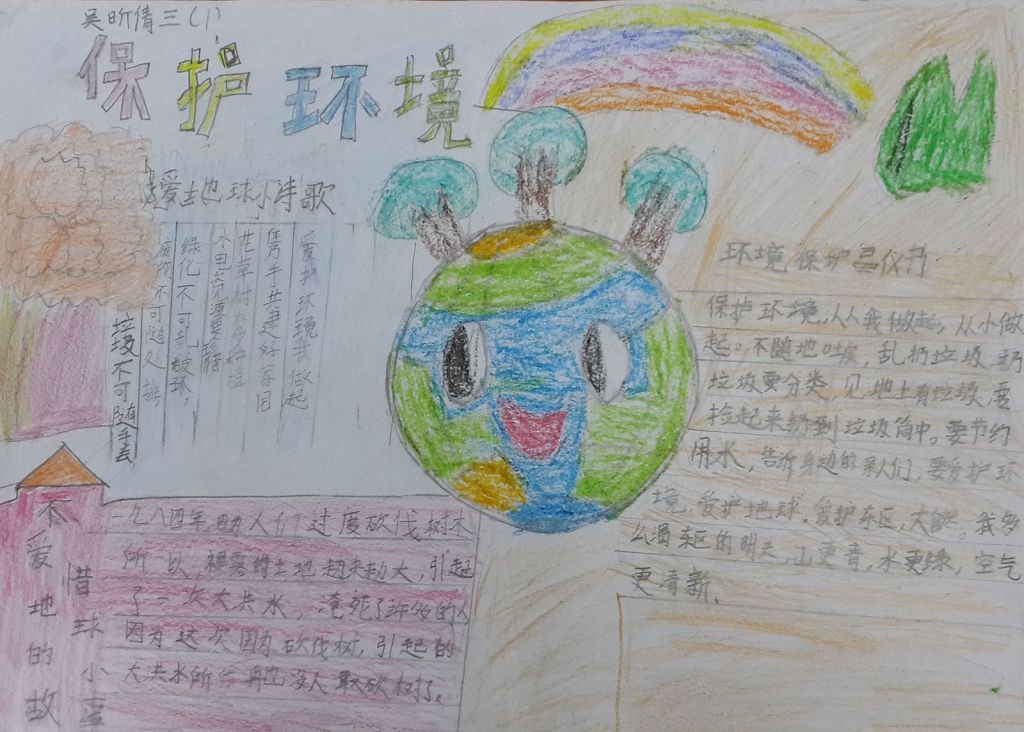 吴昕倩三(1)
保护环境
爱地球小诗歌
爱护环境我做起
携手共建好家园
花草树木多种植
绿化不可乱破坏,
废物不可随处排
垃圾不可随手丢
环境保护
保护环境,人人我做起,从小做
起。不随地吐痰,乱扔垃圾,扔
垃圾要分类,见地上有垃圾,要
捡起来扔到垃圾筒中。要节约
用水,告诉身边的亲人们,要爱护环
境,爱护地球,爱护
的明天,山更青,水更绿,空气
更清新。
不爱惜地球的故
小
一九八四年,因为人们过度砍伐树木
所以,裸露的土地越来越大,引起
了一次大洪水,淹死了许多的人
因为这次因为砍伐树,引起的
大洪水所以再也没人敢砍树了。